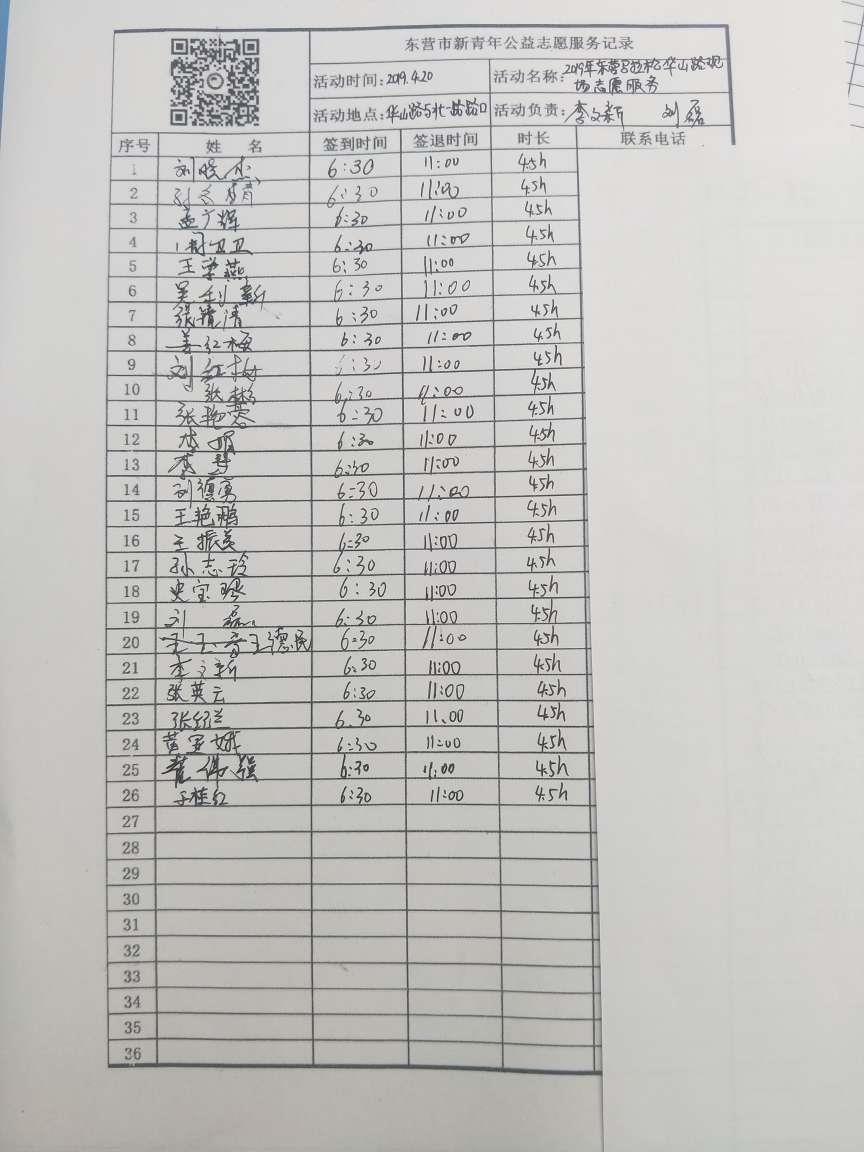 东营市新青年公益志愿服务记录
活动时间：2019.4.20 活动名称：2019年东营马拉松华山路现
场志愿服务
活动地点：华山路与北一路路口 活动负责：李文新 刘磊
序号 姓 名 签到时间 签退时间 时长 联系电话
1 刘晓杰 6:30 11:00 4.5h
2 6:30 11:00 4.5h
3 孟广辉 6:30 11:00 4.5h
4 周卫卫 6:30 11:00 4.5h
5 王学燕 6:30 11:00 4.5h
6 吴 新 6:30 11:00 4.5h
7 张 清 6:30 11:00 4.5h
8 姜红梅 6:30 11:00 4.5h
9 刘红梅 6:30 11:00 4.5h
10 张彬 6:30 11:00 4.5h
11 张艳蓉 6:30 11:00 4.5h
12 6:30 11:00 4.5h
13 李 6:30 11:00 4.5h
14 刘德勇 6:30 11:00 4.5h
15 王艳鹏 6:30 11:00 4.5h
16 王振美 6:30 11:00 4.5h
17 孙志玲 6:30 11:00 4.5h
18 史宝 6:30 11:00 4.5h
19 刘磊 6:30 11:00 4.5h
20 王德民 6:30 11:00 4.5h
21 李文新 6:30 11:00 4.5h
22 张英云 6:30 11:00 4.5h
23 张 兰 6:30 11:00 4.5h
24 黄 娥 6:30 11:00 4.5h
25 伟强 6:30 11:00 4.5h
26 于桂红 6:30 11:00 4.5h
27
28
29
30
31
32
33
34
35
36